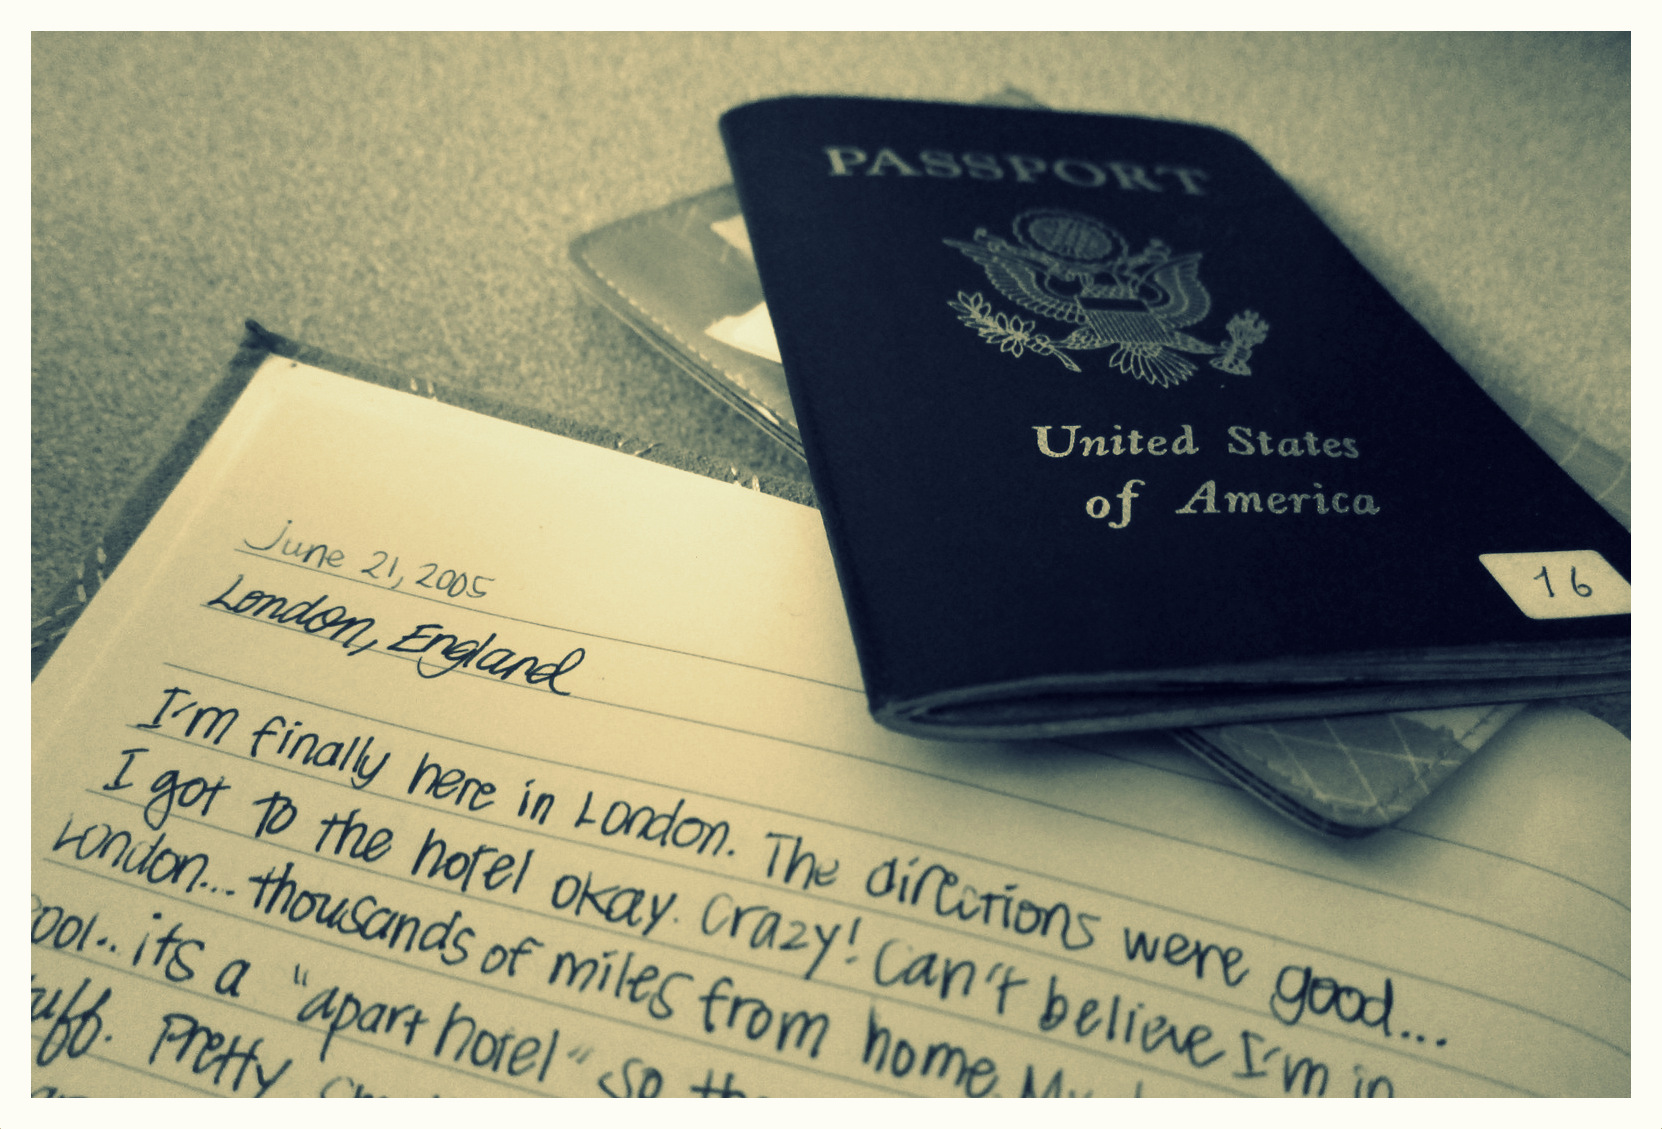 PASSPORT
United States
of America
16
June 21, 2005
London, England
I'm finally here in London. The directions were good....
I got to the hotel okay. Crazy! Can't believe I'm in
London... thousands of miles from home. My
its a "apart hotel" so
Pretty